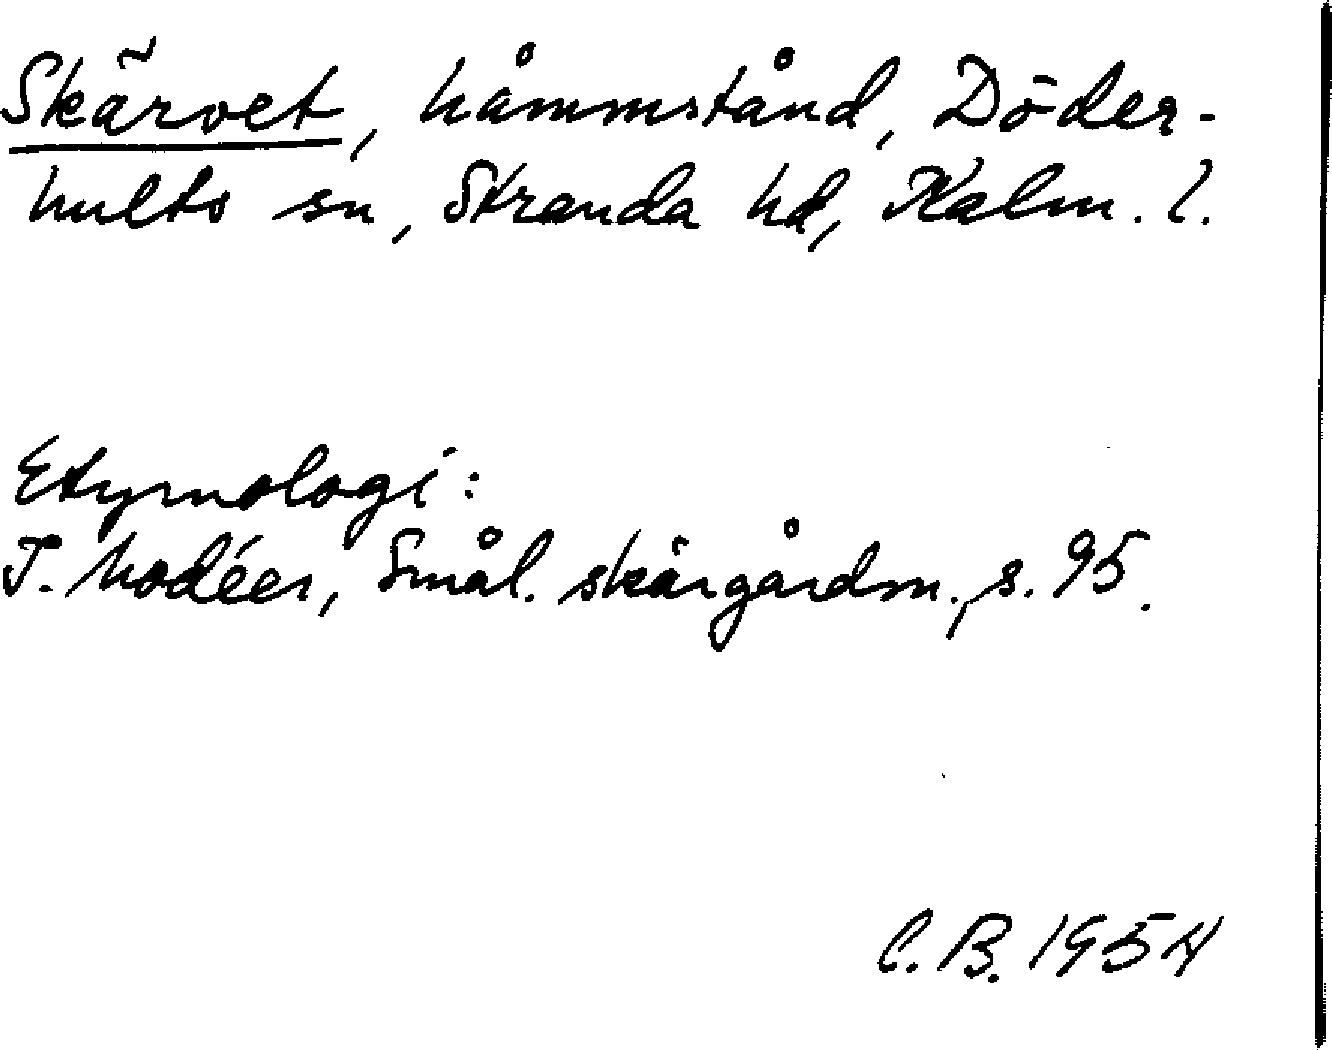 Skärvet, håmmstånd, Döder-
hults sn, Stranda hd, Kalm. l.
Etymologi:
I. Modéer, Smål. skärgårdsn., s. 95.
C. B. 1954